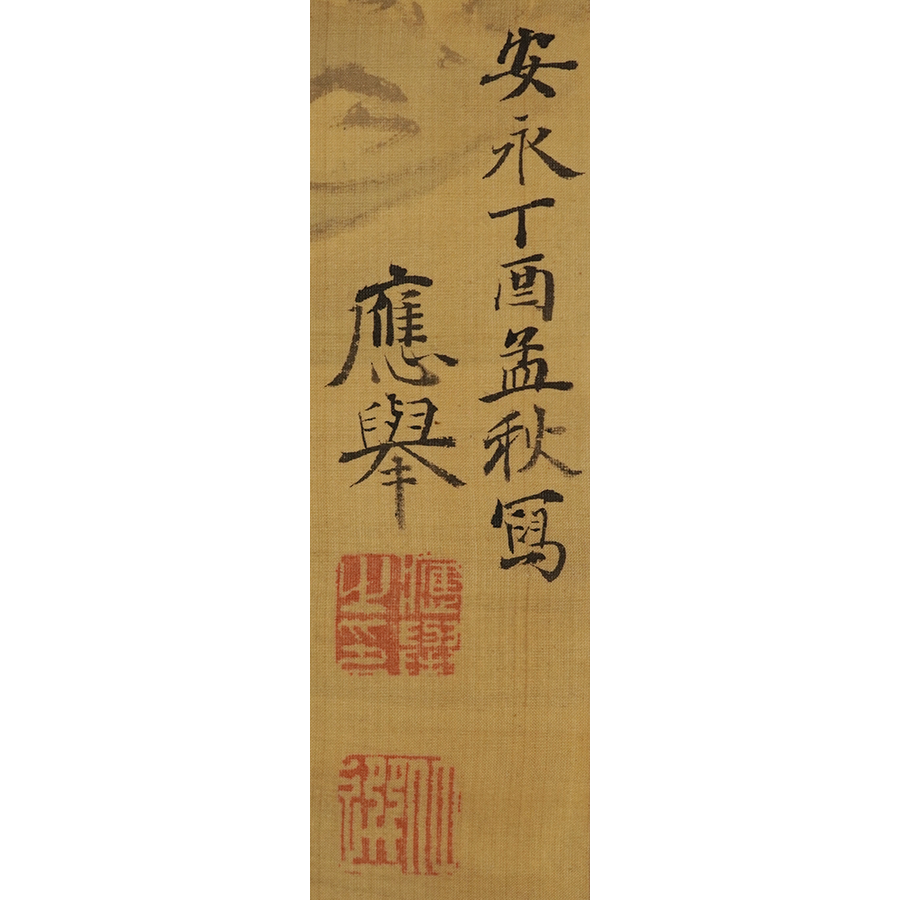 安永丁酉孟秋寫
應擧
應擧之印
仲選